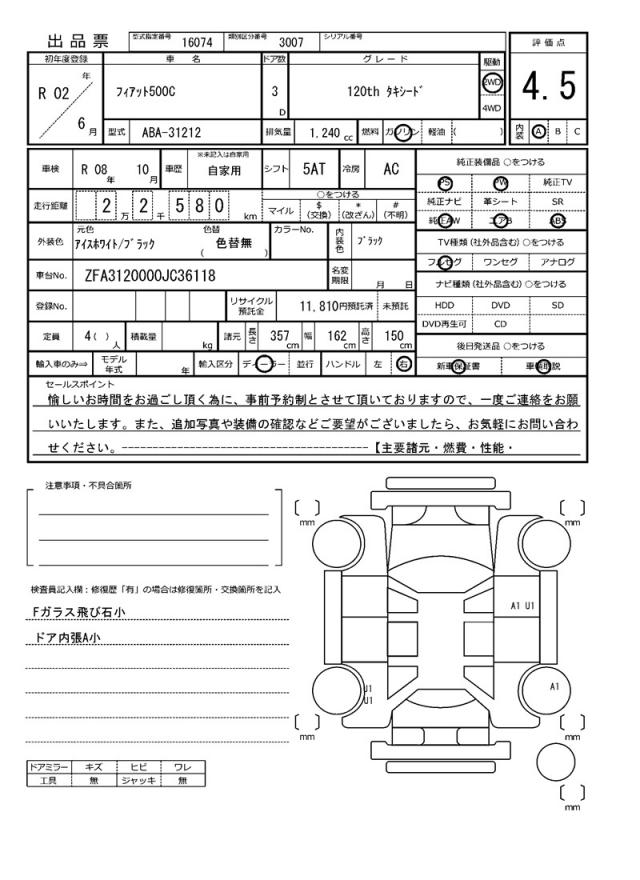 出品票 型式指定番号 16074 類別区分番号 3007 シリアル番号
初年度登録 車名 ドア数 グレード 駆動 評価点
R 02 年 6 月 フィアット500C 3 D 120th タキシード 2WD 4WD 4.5
型式 ABA-31212 排気量 1.240 cc 燃料 ガソリン 軽油 ( ) 内装 A B C
車検 R 08 年 10 月 車歴 ※未記入は自家用 自家用 シフト 5AT 冷房 AC
純正装備品 ○をつける
PS PW 純正TV
純正ナビ 革シート SR
純正AW エアB ABS
走行距離 2 万 2 千 5 8 0 km ○をつける
マイル $ (交換) * (改ざん) # (不明)
外装色 元色 アイスホワイト/ブラック 色替 ( 色替無 ) カラーNo. 内装色 ブラック
TV種類 (社外品含む) ○をつける
フルセグ ワンセグ アナログ
車台No. ZFA3120000JC36118 名変期限 月 日
ナビ種類 (社外品含む) ○をつける
HDD DVD SD
DVD再生可 CD
登録No. リサイクル預託金 11,810円預託済 未預託
定員 4( ) 人 積載量 kg 諸元 長さ 357 cm 幅 162 cm 高さ 150 cm
後日発送品 ○をつける
新車保証書 車輌取説
輸入車のみ⇒ モデル年式 年 輸入区分 ディーラー 並行 ハンドル 左 右
セールスポイント
愉しいお時間をお過ごし頂く為に、事前予約制とさせて頂いておりますので、一度ご連絡をお願
いいたします。また、追加写真や装備の確認などご要望がございましたら、お気軽にお問い合わ
せください。------------------------------------【主要諸元・燃費・性能・
注意事項・不具合箇所
検査員記入欄：修復歴「有」の場合は修復箇所・交換箇所を記入
Fガラス飛び石小
ドア内張A小
ドアミラー キズ ヒビ ワレ
工具 無 ジャッキ 無
mm mm
A1 U1
U1
U1
A1
mm mm
mm